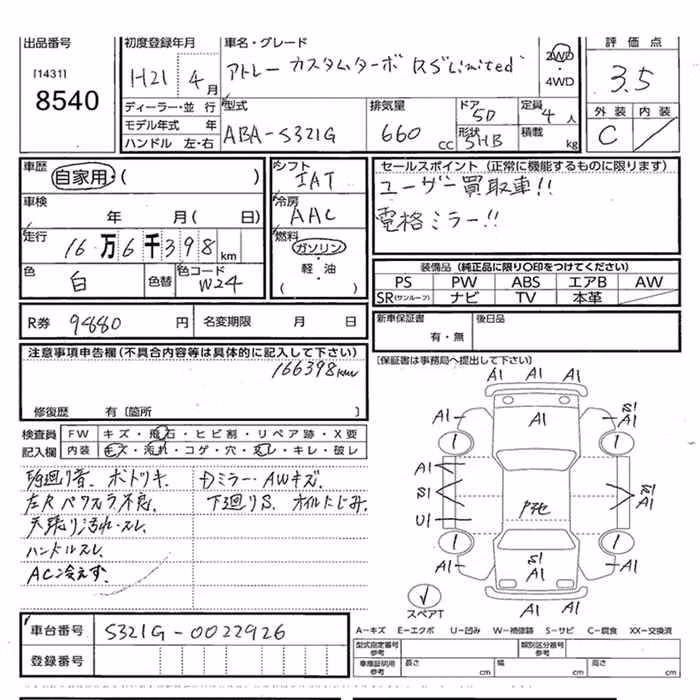 出品番号
[1431]
8540
初度登録年月
H21年 4月
車名・グレード
アトレー カスタムターボ RS Limited
2WD
・4WD
評価点
3.5
ディーラー・並行
モデル年式 年
ハンドル 左・右
型式
ABA-S321G
排気量
660 cc
ドア 5D
形状 5HB
定員 4人
積載 kg
外装 内装
C
車歴
自家用・( )
車検
年 月( 日)
走行
16万6千398km
色
白
色替
色コード
W24
シフト
IAT
冷房
AAC
燃料
ガソリン
・
軽・油
( )
セールスポイント (正常に機能するものに限ります)
ユーザー買取車!!
電格ミラー!!
装備品 (純正品に限り○印をつけてください)
PS PW ABS エアB AW
SR(サンルーフ) ナビ TV 本革
R券 9880円 名変期限 月 日
新車保証書 後日品
有・無
[保証書は事務局へ提出して下さい]
注意事項申告欄(不具合内容等は具体的に記入して下さい)
166398km
修復歴 有〔箇所 〕
検査員 FW キズ・飛石・ヒビ割・リペア跡・X要
記入欄 内装 キズ・汚れ・コゲ・穴・スレ・キレ・破レ
ボドリキ. Dミラー・AWキズ.
左Rパワスラ不良. 下廻りS. オイルにじみ.
天張り汚れ・スレ.
ハンドルスレ.
AC冷えず.
A1 A1 A1
A1 A1 A1
S1
A1
A1
S1
U1
S1
A1
S1
A1
A1 A1
A1 A1 A1
スペアT
車台番号 S321G-0022926
登録番号
A-キズ E-エクボ U-凹み W-補修跡 S-サビ C-腐食 XX-交換済
型式指定番号
参考
類別区分番号
参考
車庫証明用
参考
長さ cm 幅 cm 高さ cm